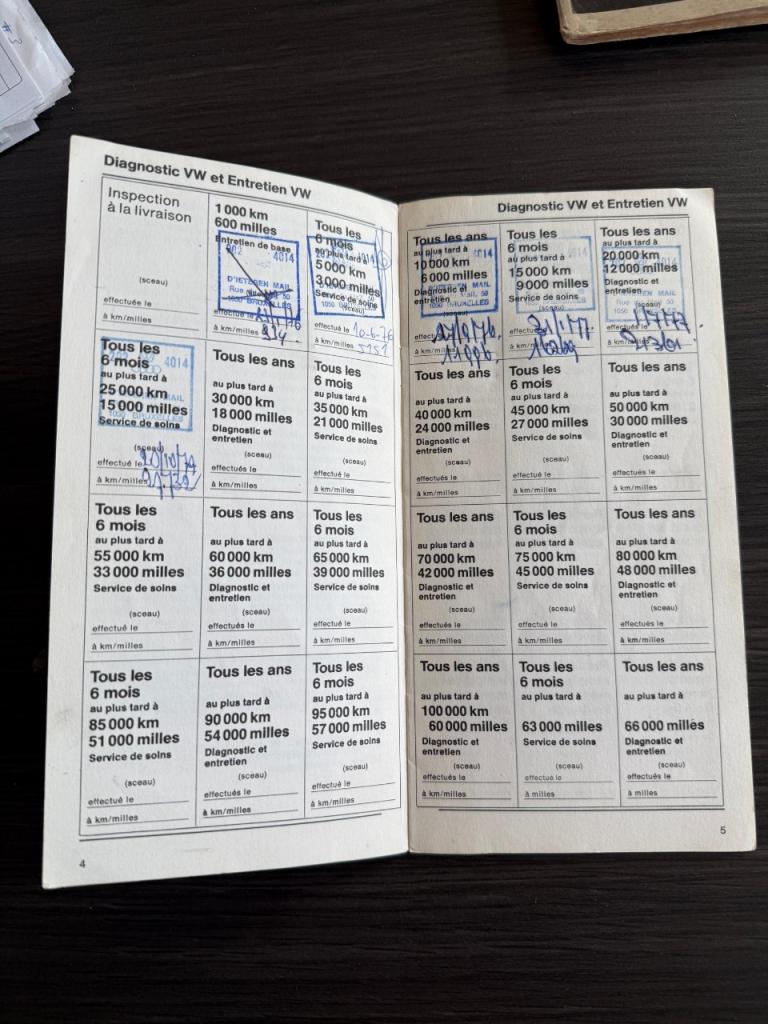 Diagnostic VW et Entretien VW
Inspection
à la livraison
(sceau)
effectuée le
à km/milles
1 000 km
600 milles
Entretien de base
4014
D'IETEREN MAIL
Rue 50
1050 BRUXELLES
à km/milles
934
Tous les
6 mois
au plus tard à
5 000 km
3 000 milles
Service de soins
effectué le 10-6-76
à km/milles 5151
Tous les
6 mois
4014
au plus tard à
25 000 km
15 000 milles
MAIL
1050 BRUXELLES
Service de soins
(sceau)
effectué le
à km/milles
Tous les ans
au plus tard à
30 000 km
18 000 milles
Diagnostic et
entretien
(sceau)
effectués le
à km/milles
Tous les
6 mois
au plus tard à
35 000 km
21 000 milles
Service de soins
(sceau)
effectué le
à km/milles
Tous les
6 mois
au plus tard à
55 000 km
33 000 milles
Service de soins
(sceau)
effectué le
à km/milles
Tous les ans
au plus tard à
60 000 km
36 000 milles
Diagnostic et
entretien
(sceau)
effectués le
à km/milles
Tous les
6 mois
au plus tard à
65 000 km
39 000 milles
Service de soins
(sceau)
effectué le
à km/milles
Tous les
6 mois
au plus tard à
85 000 km
51 000 milles
Service de soins
(sceau)
effectué le
à km/milles
Tous les ans
au plus tard à
90 000 km
54 000 milles
Diagnostic et
entretien
(sceau)
effectués le
à km/milles
Tous les
6 mois
au plus tard à
95 000 km
57 000 milles
Service de soins
(sceau)
effectué le
à km/milles
4
Diagnostic VW et Entretien VW
Tous les ans
au plus tard à
4014
10 000 km
6 000 milles
Diagnostic et
entretien
MAIL
50
BRUXELLES
effectués le
à km/milles
Tous les
6 mois
au plus tard à
15 000 km
9 000 milles
Service de soins
effectué le
à km/milles
Tous les ans
au plus tard à
20 000 km
12 000 milles
4014
Diagnostic et
entretien
D'IETEREN MAIL
50
1050 BRUXELLES
(sceau)
à km/milles
Tous les ans
au plus tard à
40 000 km
24 000 milles
Diagnostic et
entretien
(sceau)
effectués le
à km/milles
Tous les
6 mois
au plus tard à
45 000 km
27 000 milles
Service de soins
(sceau)
effectué le
à km/milles
Tous les ans
au plus tard à
50 000 km
30 000 milles
Diagnostic et
entretien
(sceau)
effectués le
à km/milles
Tous les ans
au plus tard à
70 000 km
42 000 milles
Diagnostic et
entretien
(sceau)
effectués le
à km/milles
Tous les
6 mois
au plus tard à
75 000 km
45 000 milles
Service de soins
(sceau)
effectué le
à km/milles
Tous les ans
au plus tard à
80 000 km
48 000 milles
Diagnostic et
entretien
(sceau)
effectués le
à km/milles
Tous les ans
au plus tard à
100 000 km
60 000 milles
Diagnostic et
entretien
(sceau)
effectués le
à km/milles
Tous les
6 mois
au plus tard à
63 000 milles
Service de soins
(sceau)
effectué le
à milles
Tous les ans
au plus tard à
66 000 milles
Diagnostic et
entretien
(sceau)
effectués le
à milles
5